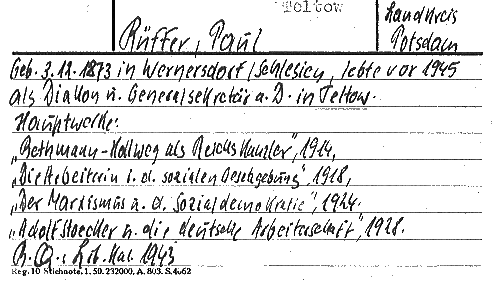 Teltow
Landkreis
Potsdam
Rüffer, Paul
Geb. 3.12.1873 in Wernersdorf/Schlesien, lebte vor 1945
als Diakon u. Generalsekretär a.D. in Teltow.
Hauptwerke:
„Bethmann-Hollweg als Reichskanzler", 1914,
„Die Arbeiterin i. d. sozialen Gesetzgebung", 1918,
„Der Marxismus u. d. Sozialdemokratie", 1924.
„Adolf Stoecker u. die deutsche Arbeiterschaft", 1928.
B.Q.: Lit. Kal. 1943
Reg. 10 Stichnote. 1. 50. 232000. A. 803. S. 4062